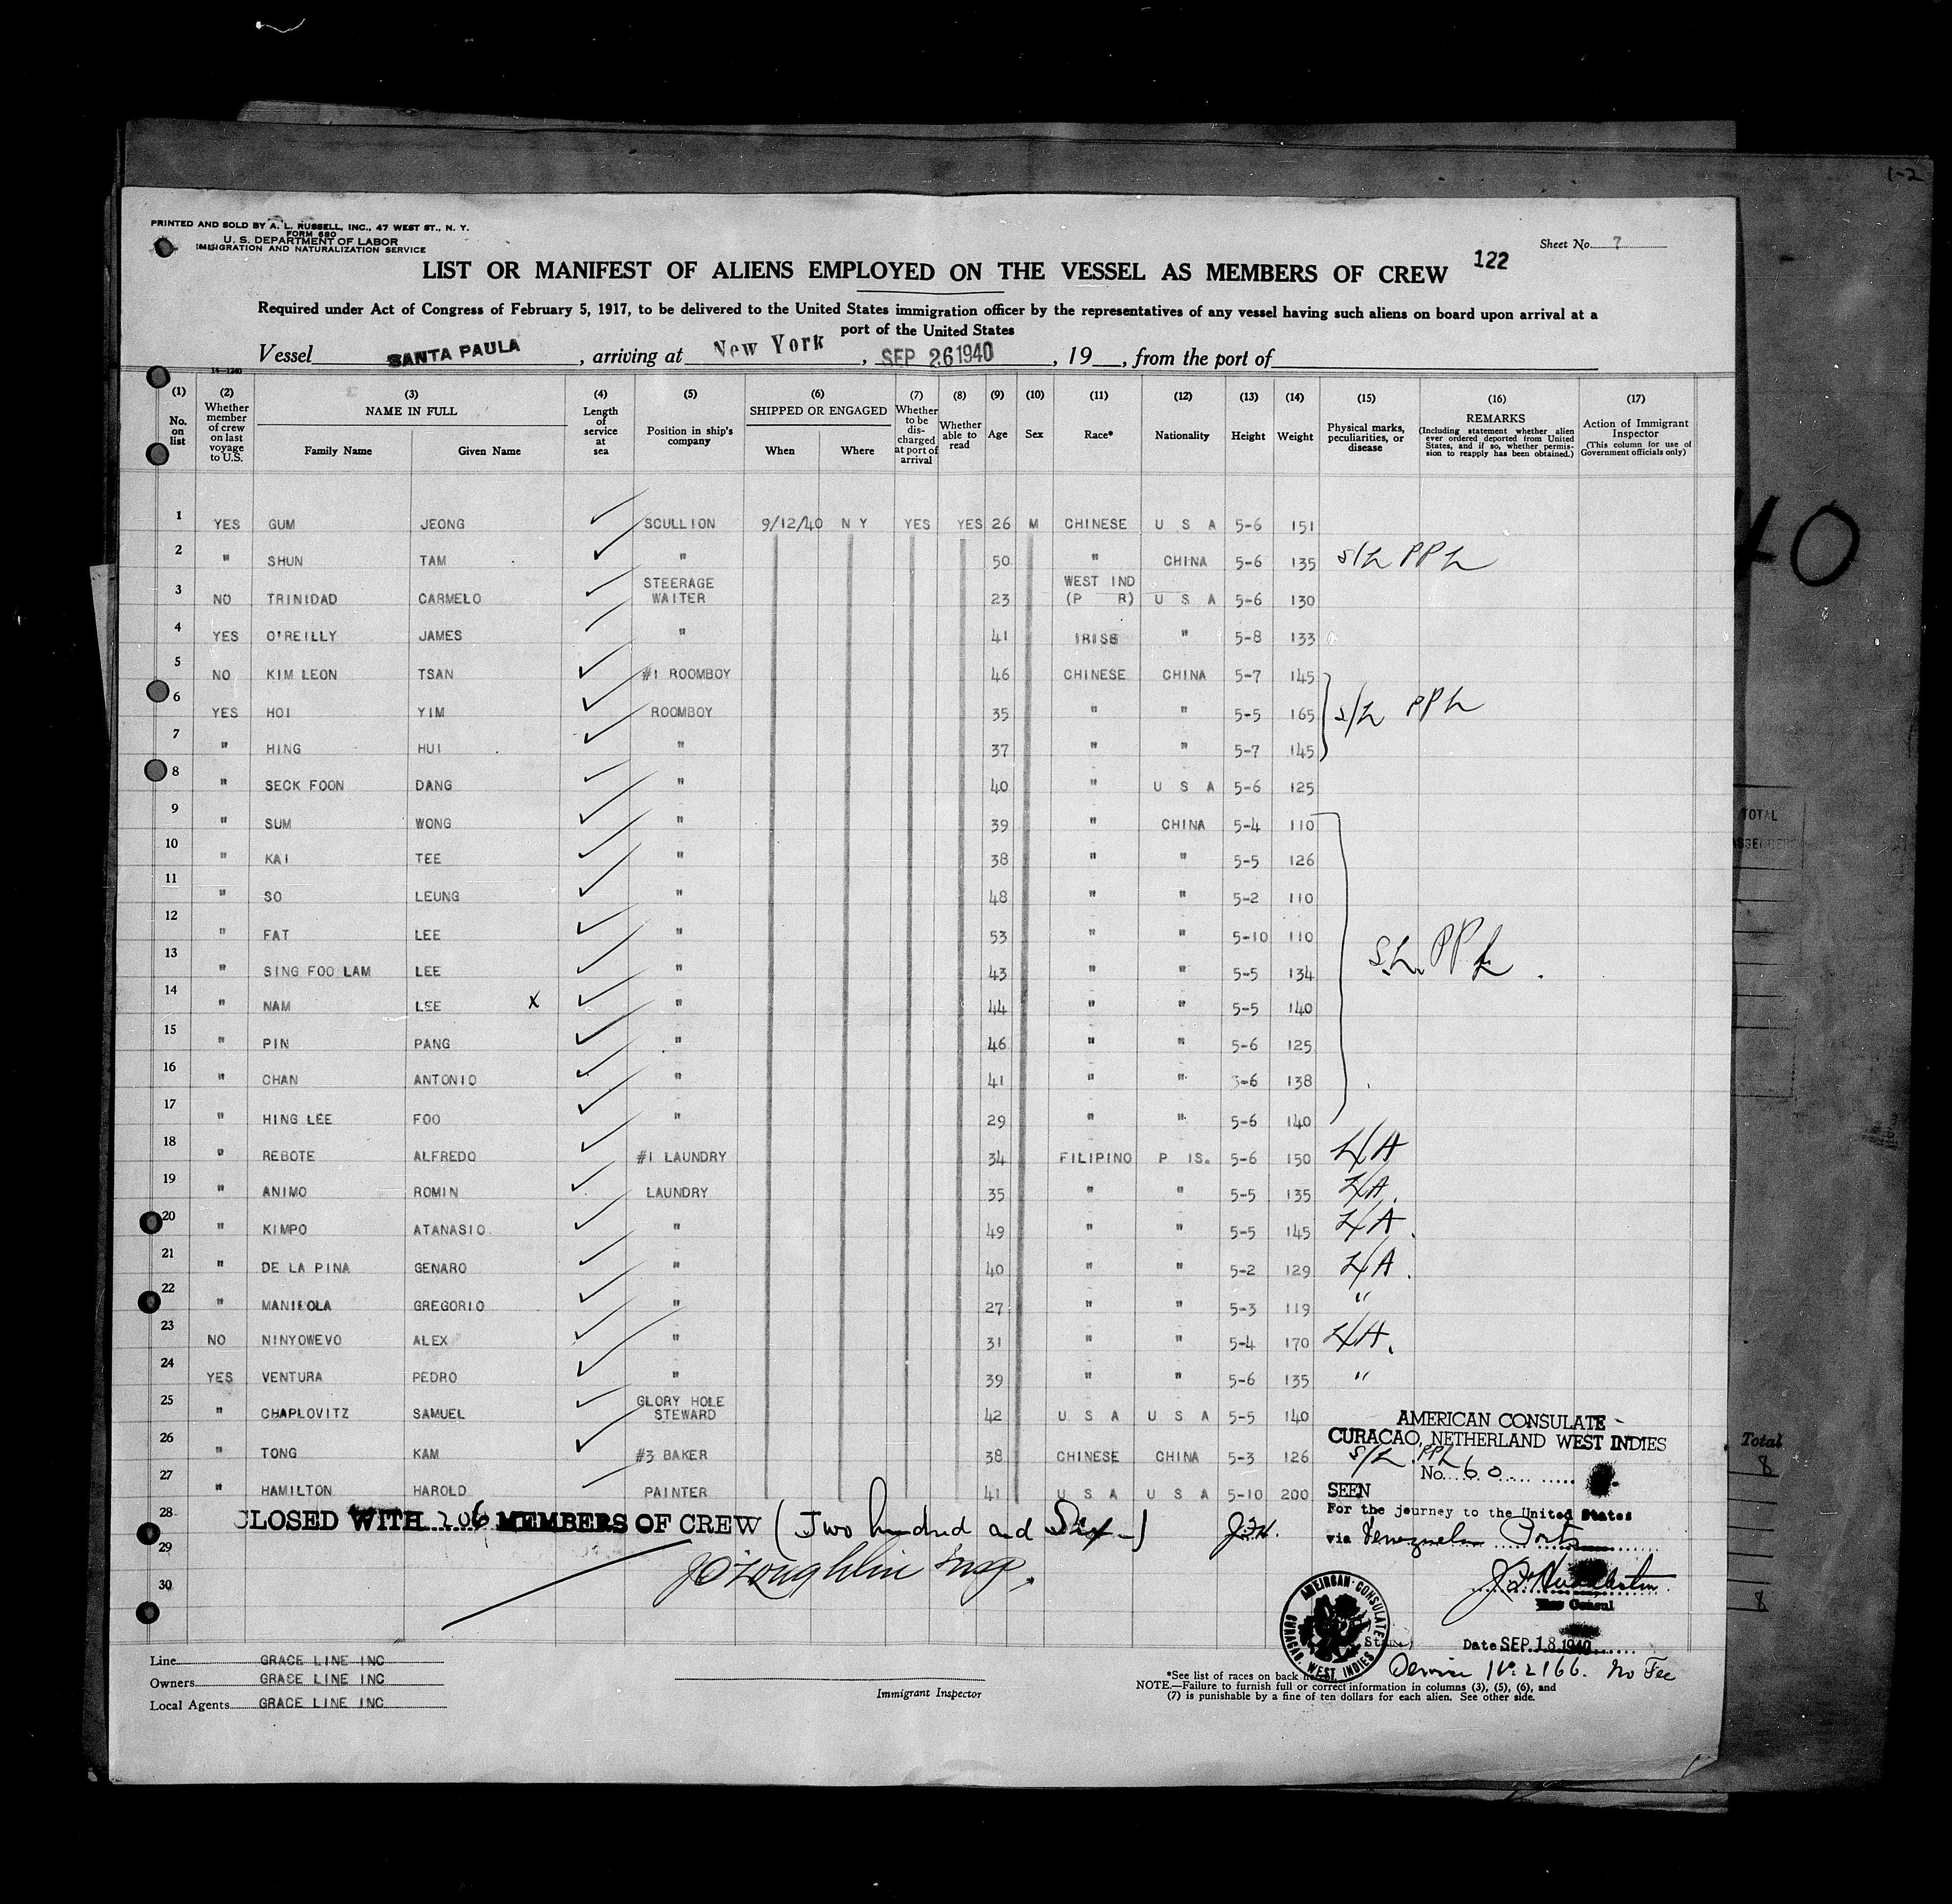 1-2
PRINTED AND SOLD BY A. L. RUSSELL, INC., 47 WEST ST., N. Y.
FORM 680
U. S. DEPARTMENT OF LABOR
IMMIGRATION AND NATURALIZATION SERVICE
Sheet No. 7
LIST OR MANIFEST OF ALIENS EMPLOYED ON THE VESSEL AS MEMBERS OF CREW 122
Required under Act of Congress of February 5, 1917, to be delivered to the United States immigration officer by the representatives of any vessel having such aliens on board upon arrival at a
port of the United States
Vessel SANTA PAULA, arriving at New York, SEP 26 1940, 19__, from the port of
14—1240
(1) No. on list (2) Whether member of crew on last voyage to U.S. (3) NAME IN FULL Family Name Given Name (4) Length of service at sea (5) Position in ship's company (6) SHIPPED OR ENGAGED When Where (7) Whether to be discharged at port of arrival (8) Whether able to read (9) Age (10) Sex (11) Race* (12) Nationality (13) Height (14) Weight (15) Physical marks, peculiarities, or disease (16) REMARKS (Including statement whether alien ever ordered deported from United States, and if so, whether permission to reapply has been obtained.) (17) Action of Immigrant Inspector (This column for use of Government officials only)
1 YES GUM JEONG SCULLION 9/12/40 N Y YES YES 26 M CHINESE U S A 5-6 151
2 " SHUN TAM " 50 " CHINA 5-6 135 S/L PPL
3 NO TRINIDAD CARMELO STEERAGE WAITER 23 WEST IND (P R) U S A 5-6 130
4 YES O'REILLY JAMES " 41 IRISH " 5-8 133
5 NO KIM LEON TSAN #1 ROOMBOY 46 CHINESE CHINA 5-7 145
6 YES HOI YIM ROOMBOY 35 " " 5-5 165 S/L PPL
7 " HING HUI " 37 " " 5-7 145
8 " SECK FOON DANG " 40 " U S A 5-6 125
9 " SUM WONG " 39 " CHINA 5-4 110
10 " KAI TEE " 38 " " 5-5 126
11 " SO LEUNG " 48 " " 5-2 110
12 " FAT LEE " 53 " " 5-10 110
13 " SING FOO LAM LEE " 43 " " 5-5 134 S.L. PPL.
14 " NAM LEE X " 44 " " 5-5 140
15 " PIN PANG " 46 " " 5-6 125
16 " CHAN ANTONIO " 41 " " 5-6 138
17 " HING LEE FOO " 29 " " 5-6 140
18 " REBOTE ALFREDO #1 LAUNDRY 34 FILIPINO P IS. 5-6 150 L/A
19 " ANIMO ROMIN LAUNDRY 35 " " 5-5 135 L/A.
20 " KIMPO ATANASIO " 49 " " 5-5 145 L/A.
21 " DE LA PINA GENARO " 40 " " 5-2 129 L/A.
22 " GREGORIO " 27 " " 5-3 119 "
23 NO NINYOWEVO ALEX " 31 " " 5-4 170 L/A.
24 YES VENTURA PEDRO " 39 " " 5-6 135 "
25 " CHAPLOVITZ SAMUEL GLORY HOLE STEWARD 42 U S A U S A 5-5 140
26 " TONG KAM #3 BAKER 38 CHINESE CHINA 5-3 126 S/L PPL
27 " HAMILTON HAROLD PAINTER 41 U S A U S A 5-10 200
28 CLOSED WITH 206 MEMBERS OF CREW (Two hundred and Six) J.F.H.
29
30
AMERICAN CONSULATE
CURACAO, NETHERLAND WEST INDIES
No. 60
SEEN
For the journey to the United States
via Venezuelan Ports
Vice Consul
AMERICAN CONSULATE
CURACAO, WEST INDIES
Date SEP 18 1940
Service No. 2166. No Fee
Line GRACE LINE INC
Owners GRACE LINE INC
Local Agents GRACE LINE INC
Immigrant Inspector
*See list of races on back
NOTE.—Failure to furnish full or correct information in columns (3), (5), (6), and
(7) is punishable by a fine of ten dollars for each alien. See other side.
40
TOTAL
Total
8
8